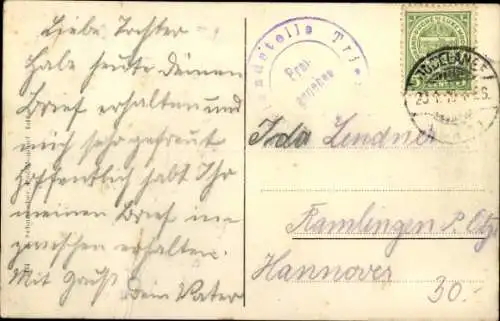 Liebe Tochter
Habe heute deinen
Brief erhalten und
mich sehr gefreut
Hoffentlich habt Ihr
meinen Brief in-
zwischen erhalten.
Mit Gruß
Dein Vater
Trier
Frei-
gegeben
Ida Lendner
Ramlingen
Hannover
30.-